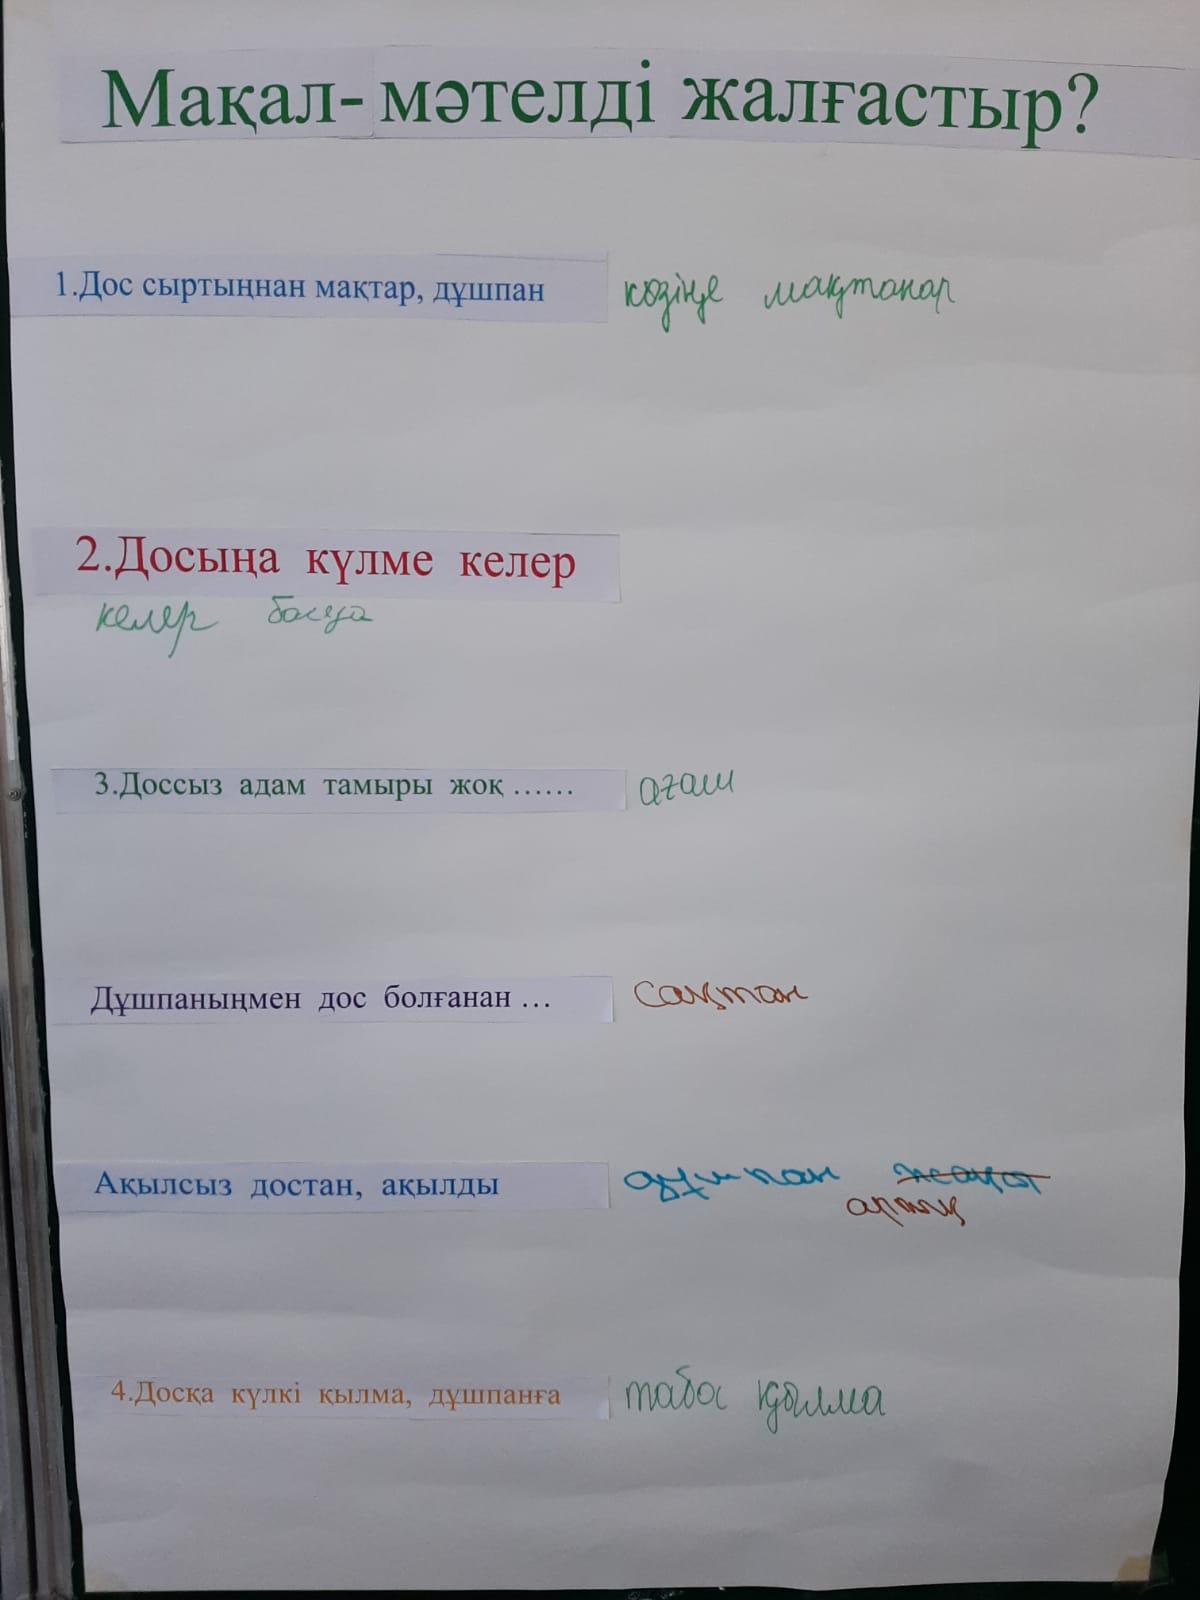 Мақал- мәтелді жалғастыр?
1.Дос сыртыңнан мақтар, дұшпан көзіңе мақтанар
2.Досыңа күлме келер
келер басқа
3.Доссыз адам тамыры жоқ ...... ағаш
Дұшпаныңмен дос болғанан ... сақтан
Ақылсыз достан, ақылды дұшпан
артық
4.Досқа күлкі қылма, дұшпанға таба қылма